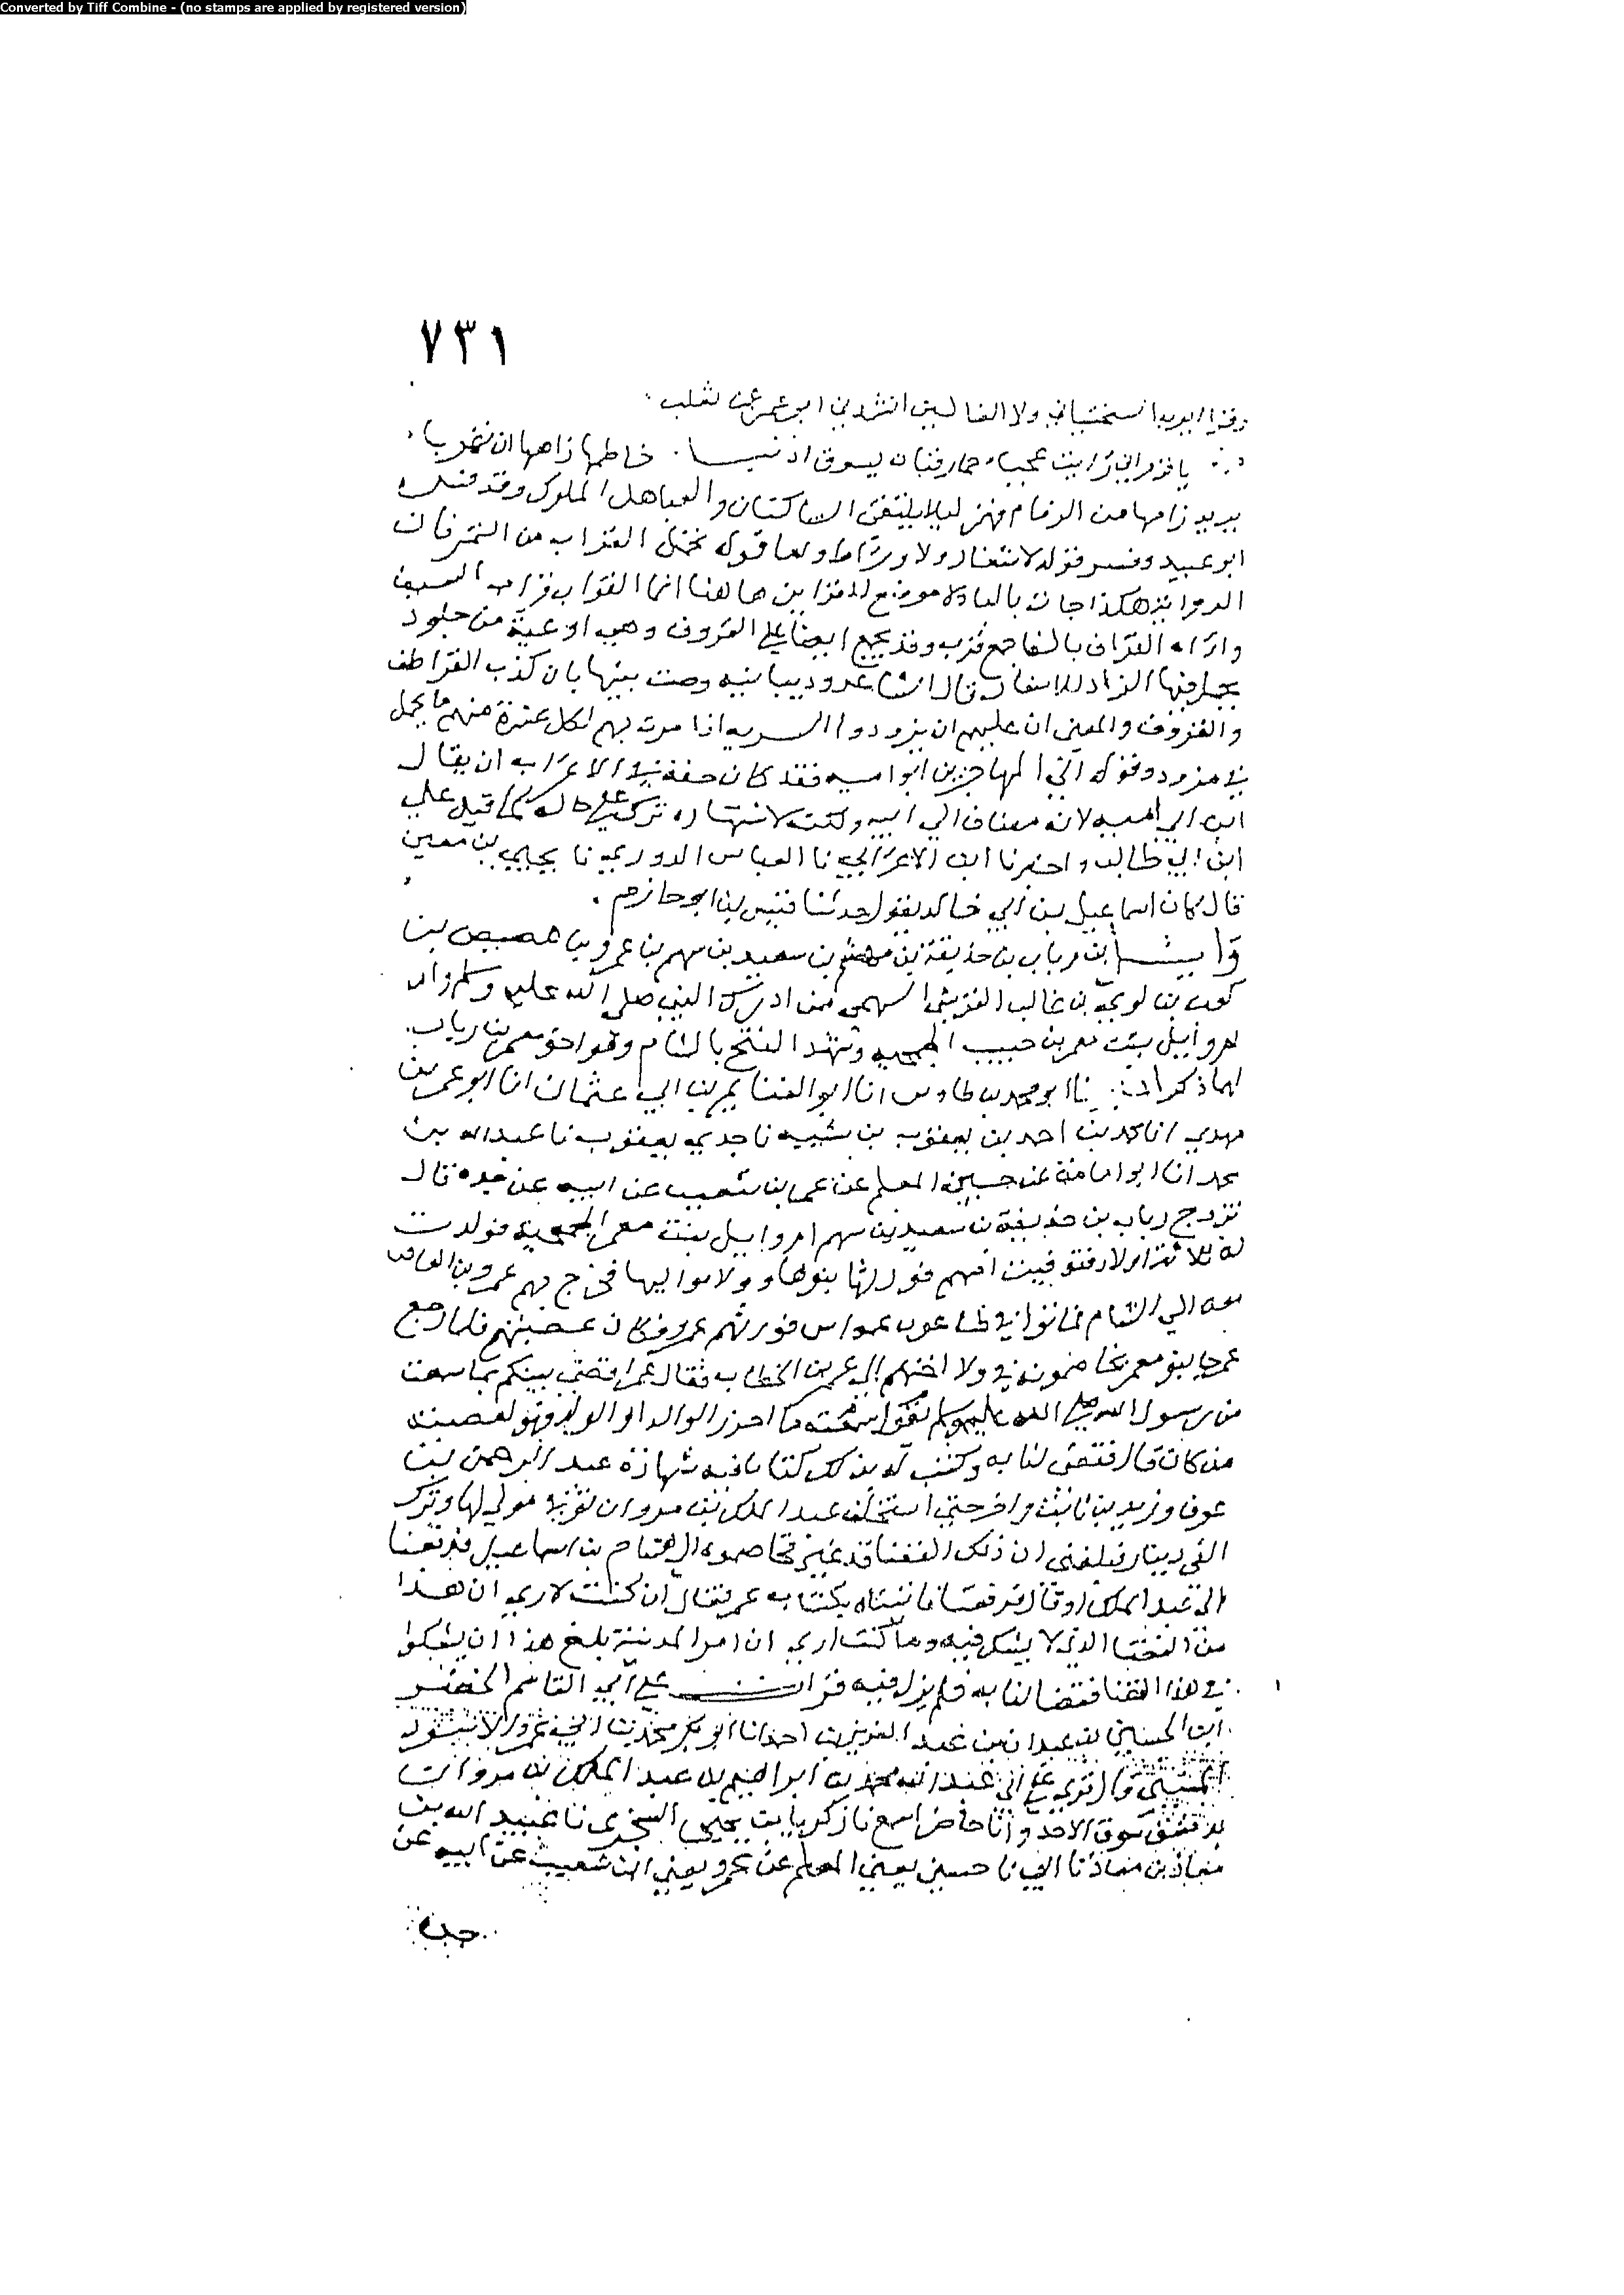 Converted by Tiff Combine - (no stamps are applied by registered version)
٧٣١
ولا انشدني ابو عمر عن ثعلب
يا قوم اني رايت عجبا حمار قبان يسوق ارنبا خاطمها زامها ان تذهبا
يريد زامها من الزمام فهمز والعباهل الملوك وقد فسره
ابو عبيد وفسر قوله لا شغار ولا وراط واما قوله القراب من التمر فان
الرواية هكذا جات بالباء ولا موضع للقراب هاهنا انما القراب قراب السيف
واراه القراف بالفا جمع قرف وقد يجمع ايضا علي القروف وهي اوعية من جلود
يحمل فيها الزاد للاسفار قال الشاعر وذبيانيه وصت بنيها بان كذب القراطف
والقروف والمعني ان عليهم ان يزودوا السريه اذا مرت بهم لكل عشرة منهم ما يحمل
في مزود وقوله الي المهاجر بن ابو اميه فقد كان حقه في الاعراب ان يقال
ابن ابي اميه لانه مضاف الي ابيه ولكنه لاشتهاره ترك علي حاله كما قيل علي
ابن ابي طالب واخبرنا ابن الاعرابي نا العباس الدوري نا يحيي بن معين
قال كان اسماعيل بن ابي خالد يقول حدثنا قيس بن ابو حازم
وايل بن رياب بن حذيفة بن مهشم بن سعيد بن سهم بن عمرو بن هصيص بن
كعب بن لوي بن غالب القرشي السهمي ممن ادرك النبي صلي الله عليه وسلم وام
ام وايل بنت معمر بن حبيب الجمحيه وشهد الفتح بالشام وهو اخو معمر بن رياب
ابو محمد بن طاوس انا ابو الغنايم بن ابي عثمان انا ابو عمر بن
مهدي انا محمد بن احمد بن يعقوب بن شيبه نا جدي يعقوب نا عبد الله بن
محمد انا ابو اسامة عن حسين المعلم عن عمرو بن شعيب عن ابيه عن جده قال
تزوج رياب بن حذيفة بن سعيد بن سهم ام وايل بنت معمر الجمحيه فولدت
له ثلاثة اولاد فتوفيت امهم فورثها بنوها وولا مواليها فخرج بهم عمرو بن العاص
معه الي الشام فماتوا في طاعون عمواس فورثهم عمرو وكان عصبتهم فلما رجع
عمرو جا بنو معمر يخاصمونه في ولا اختهم الي عمر بن الخطاب فقال عمر اقضي بينكم بما سمعت
من رسول الله صلي الله عليه وسلم يقول سمعته ما احرز الوالد او الولد فهو لعصبته
من كان قال فقضي لنا به وكتب له بذلك كتابا فيه شهادة عبد الرحمن بن
عوف وزيد بن ثابت واخر حتي استخلف عبد الملك بن مروان توفي مولي لها وترك
الفي دينار فبلغني ان ذلك القضا قد غير فخاصموه الي هشام بن اسماعيل فرفعنا
الي عبد الملك او قال فرفعنا فاتيناه بكتاب عمر فقال ان كنت لاري ان هذا
من القضا الذي لا يشك فيه وما كنت اري ان امر المدينة بلغ هذا ان يشكوا
في هذا القضا فقضا لنا به فلم نزل فيه قرات علي ابي القاسم الخضر
ابن الحسين بن عبدان عن عبد العزيز بن احمد انا ابو بكر محمد بن
قال قري علي ابي عبد الله محمد بن ابراهيم بن عبد الملك بن مروان
بدمشق سوق الاحد وانا حاضر اسمع نا زكريا بن يحيي السجزي نا عبيد الله بن
معاذ بن معاذ نا ابي نا حسين يعني المعلم عن عمرو يعني ابن شعيب عن ابيه عن
جده